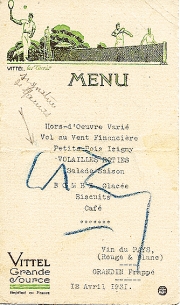 VITTEL
MENU
Hors-d'Oeuvre Varié
Vol au Vent Financière
Petits-Pois Isigny
VOLAILLES ROTIES
Salade Saison
Glacée
Biscuits
Café
Vin du PAYS,
(Rouge & Blanc)
GRANDIN Frappé
12 Avril 1931.
VITTEL
Grande
Source